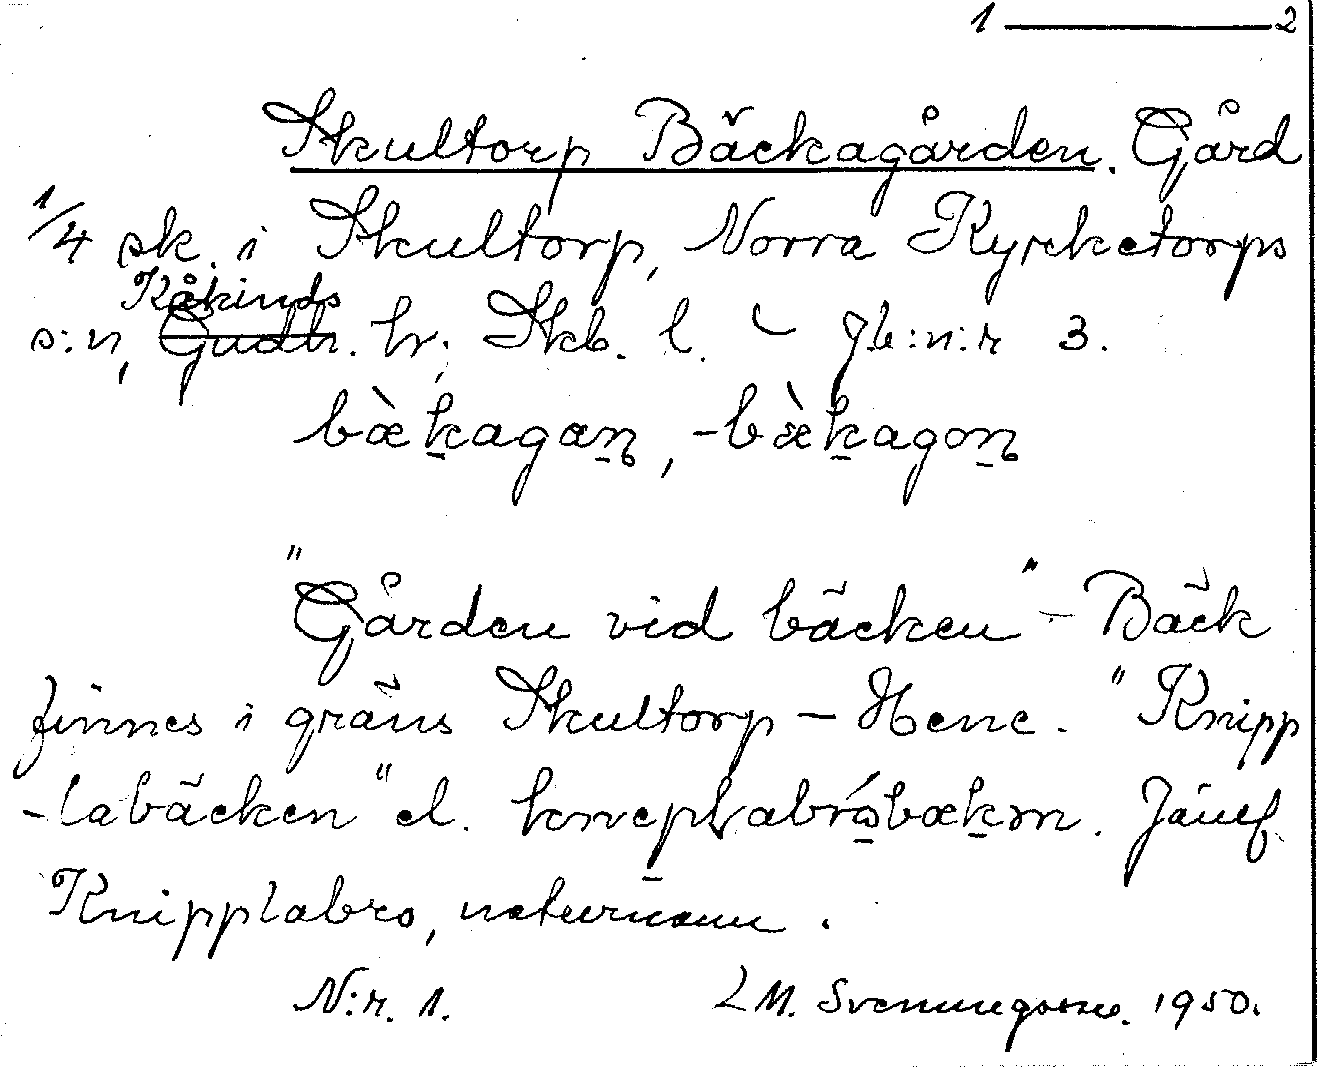 1 — 2
Skultorp Bäckagården. Gård
1/4 sk. i Skultorp, Norra Kyrketorps
Kåkinds
s:n, Gudh. hr, Skb. l. – Jb:n:r 3.
bæ̀kagaɳ, -bæ̀kagoɳ
"Gården vid bäcken" – Bäck
finnes i gräns Skultorp – Hene. "Knipp
-labäcken" el.
Knipplabro, naturnamn.
N:r. 1. L M. Svenungsson. 1950.